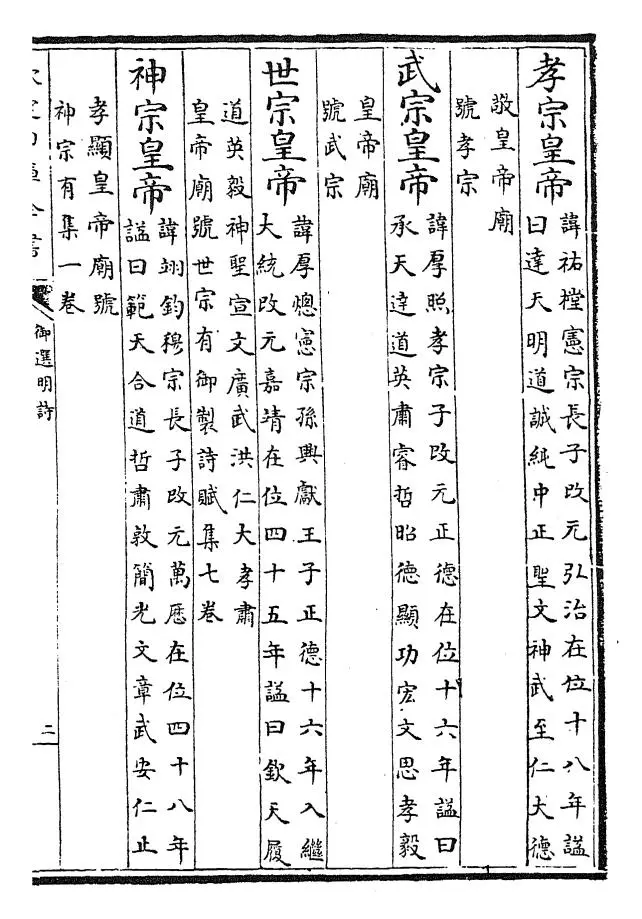 孝宗皇帝
諱祐樘憲宗長子改元弘治在位十八年諡
曰達天明道誠純中正聖文神武至仁大德
敬皇帝廟
號孝宗
武宗皇帝
諱厚照孝宗子改元正德在位十六年諡曰
承天達道英肅睿哲昭德顯功宏文思孝毅
皇帝廟
號武宗
世宗皇帝
諱厚熜憲宗孫興獻王子正德十六年入繼
大統改元嘉靖在位四十五年諡曰欽天履
道英毅神聖宣文廣武洪仁大孝肅
皇帝廟號世宗有御製詩賦集七卷
神宗皇帝
諱翊鈞穆宗長子改元萬厯在位四十八年
諡曰範天合道哲肅敦簡光文章武安仁止
孝顯皇帝廟號
神宗有集一卷
御選明詩
二